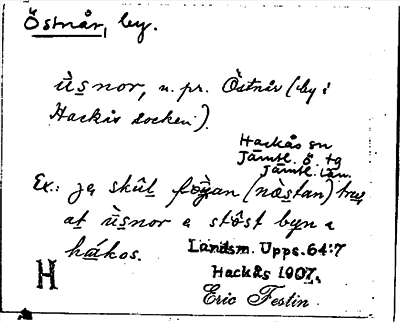 Östnår, by.
ùs̲nor, n. pr. Östnår (by i
Hackås socken).
Hackås sn
Jämtl. ö. tg
Jämtl. län.
Ex.: ja skûl̲ (næs̲tan) tru̲
at̲ ùs̲nor a stôst byn a
hákos.
Landsm. Upps. 64:7
H
Hackås 1907.
Eric Festin